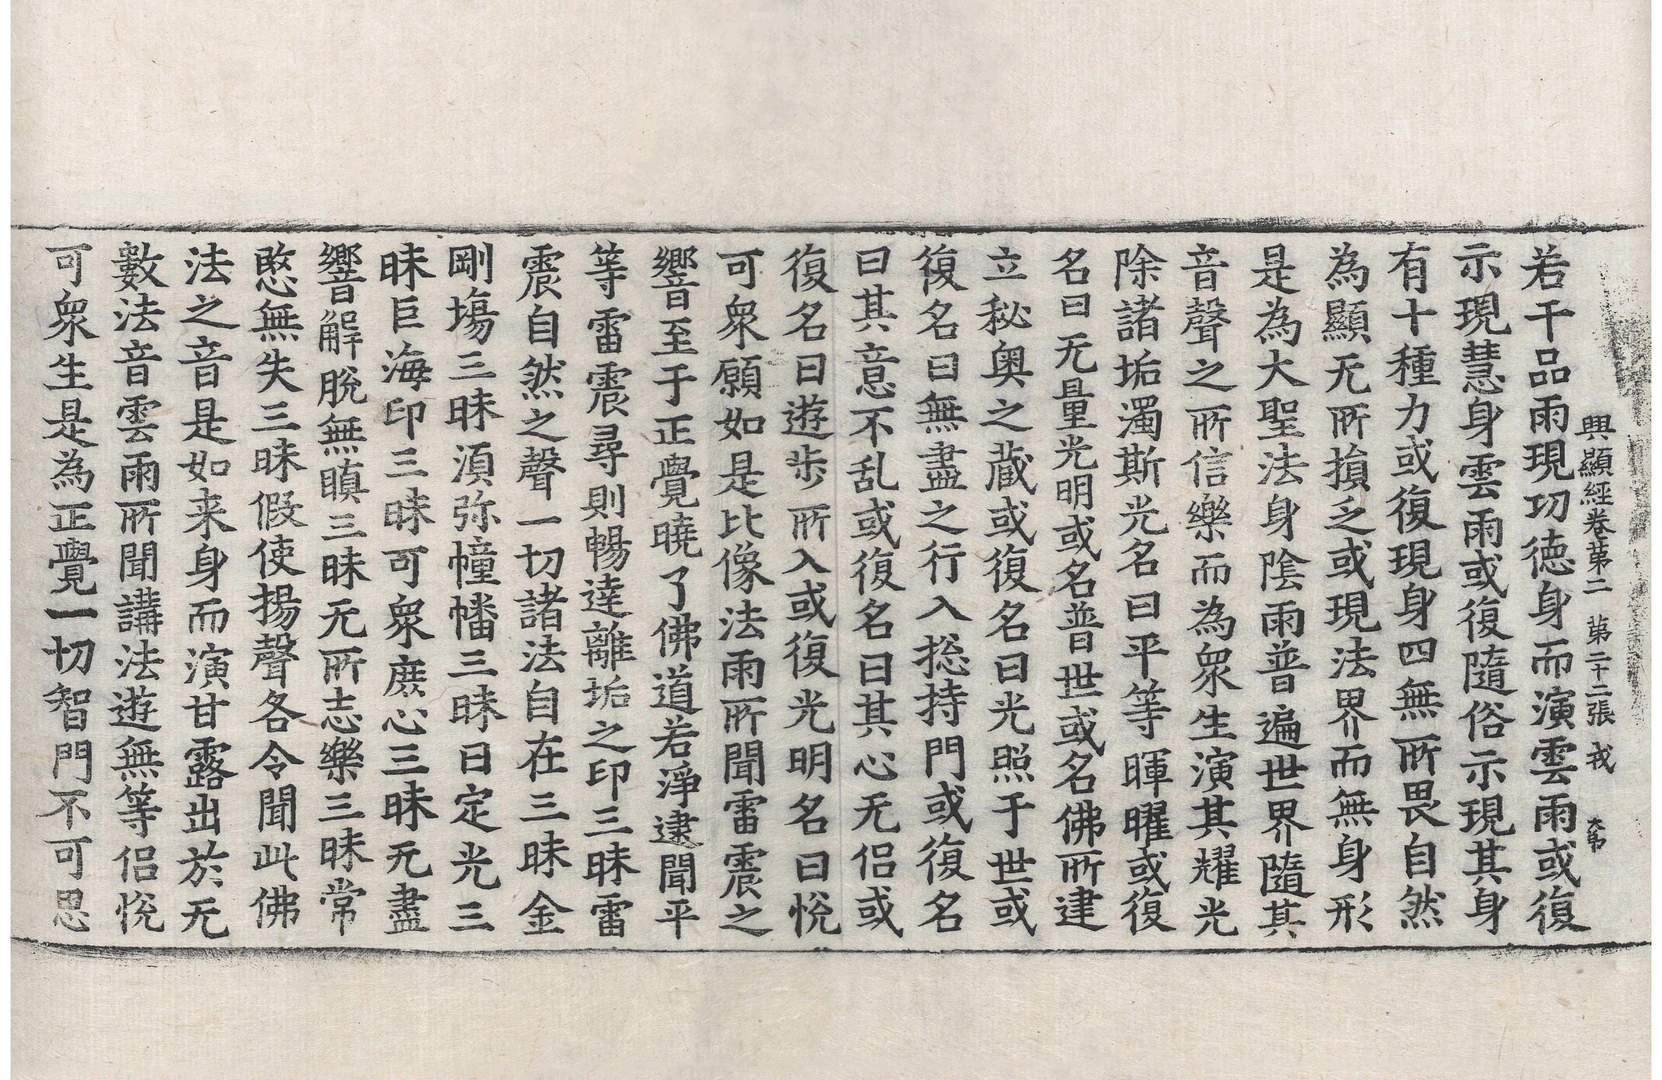 興顯經卷第二 第二十二張 戎 大弟
若干品雨現功德身而演雲雨或復
示現慧身雲雨或復隨俗示現其身
有十種力或復現身四無所畏自然
為顯无所損乏或現法界而無身形
是為大聖法身陰雨普遍世界隨其
音聲之所信樂而為衆生演其耀光
除諸垢濁斯光名曰平等暉曜或復
名曰无量光明或名普世或名佛所建
立秘奥之藏或復名曰光照于世或
復名曰無盡之行入捴持門或復名
曰其意不乱或復名曰其心无侶或
復名曰遊步所入或復光明名曰恱
可衆願如是比像法雨所聞雷震之
響音至于正覺曉了佛道若淨逮聞平
等雷震尋則暢逹離垢之印三昧雷
震自然之聲一切諸法自在三昧金
剛塲三昧湏弥幢幡三昧日定光三
昧巨海印三昧可衆庶心三昧无盡
響音解脫無瞋三昧无所志樂三昧常
愍無失三昧假使揚聲各令聞此佛
法之音是如来身而演甘露出於无
數法音雲雨所聞講法遊無等侶恱
可衆生是為正覺一切智門不可思